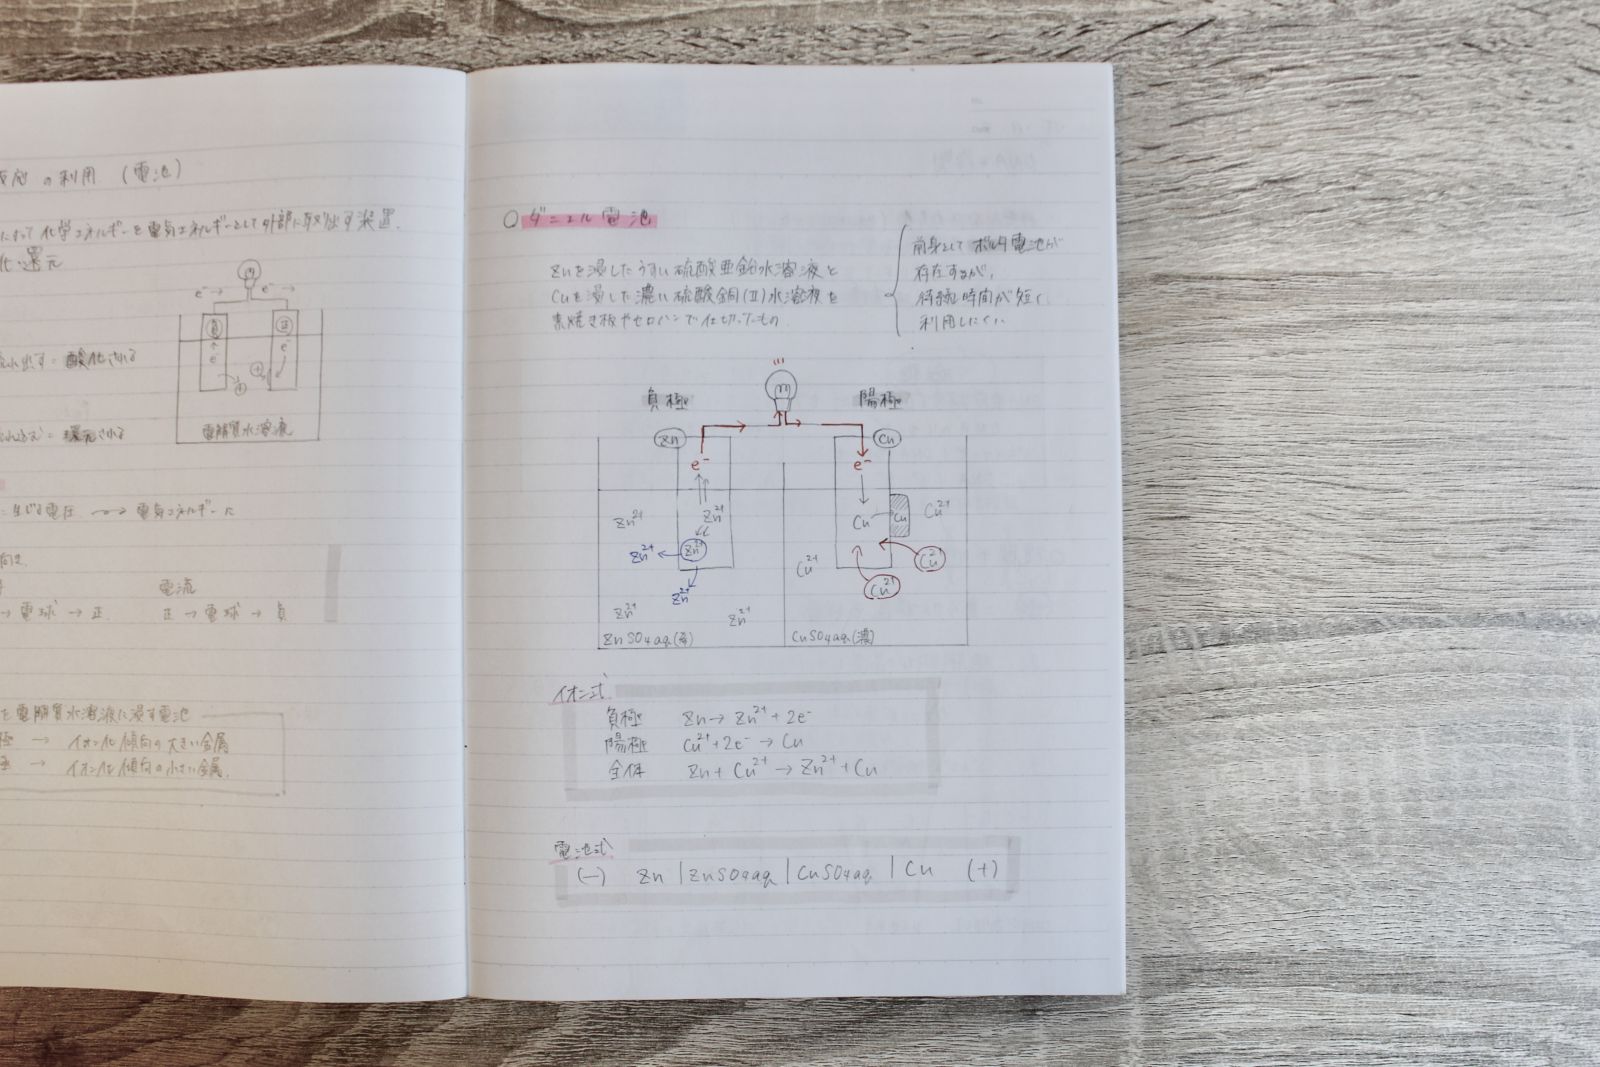 反応の利用 (電池)
によって化学エネルギーを電気エネルギーとして外部に取り出す装置.
化・還元
e⁻→ e⁻→
負 正
e⁻ e⁻
+ +
れ出す = 酸化される
= 還元される
電解質水溶液
生じる電圧 → 電気エネルギーに
向き
電流
→ 電球 → 正 正 → 電球 → 負
を電解質水溶液に浸す電池
極 → イオン化傾向の大きい金属
極 → イオン化傾向の小さい金属.
○ ダニエル電池
Znを浸したうすい硫酸亜鉛水溶液と
Cuを浸した濃い硫酸銅(Ⅱ)水溶液を
素焼き板やセロハンで仕切ったもの
前身としてボルタ電池が
存在するが,
持続時間が短く
利用しにくい
負極 陽極
Zn Cu
e⁻ e⁻
Zn²⁺ Zn²⁺ Cu Cu Cu²⁺
Zn²⁺ Zn²⁺ Cu²⁺ Cu²⁺
Zn²⁺ Cu²⁺
Zn²⁺ Zn²⁺
ZnSO₄aq.(希) CuSO₄aq.(濃)
イオン式
負極 Zn → Zn²⁺ + 2e⁻
陽極 Cu²⁺ + 2e⁻ → Cu
全体 Zn + Cu²⁺ → Zn²⁺ + Cu
電池式
(−) Zn | ZnSO₄aq | CuSO₄aq | Cu (+)